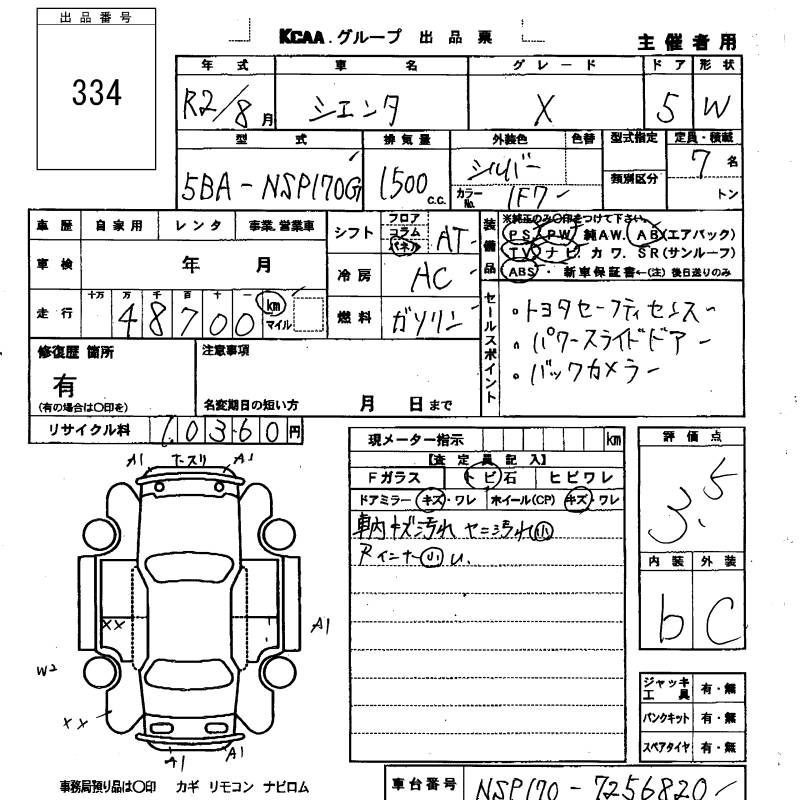 出品番号
334
KCAA.グループ 出品票
主催者用
年式 車名 グレード ドア 形状
R2/8月 シエンタ X 5 W
型式 排気量 外装色 色替 型式指定 定員・積載
類別区分
5BA-NSP170G 1500 c.c. シルバー 7名
カラーNo. 1F7 トン
車歴 自家用 レンタ 事業.営業車
シフト フロア コラム パネル AT
装備品
※純正のみ〇印をつけて下さい。
PS. PW 純AW. AB(エアバック)
TV ナビ. カワ. SR(サンルーフ)
ABS・ 新車保証書←(注)後日送りのみ
車検 年 月
冷房 AC
走行 十万 万 千 百 十 一
48700 km マイル
燃料 ガソリン
セールスポイント
・トヨタセーフティセンス
・パワースライドドア
・バックカメラ
修復歴 箇所
有
(有の場合は〇印を)
注意事項
名変期日の短い方 月 日まで
リサイクル料 7,0360円
現メーター指示 km
【査定員記入】
Fガラス トビ石 ヒビワレ
ドアミラー キズ・ワレ ホイール(CP) キズ・ワレ
車内キズ汚れ ヤニ汚れ小
Rインナー小
評価点
3.5
内装 外装
b C
ジャッキ工具 有・無
パンクキット 有・無
スペアタイヤ 有・無
A1 A1
A1
XX
W2
XX
A1 A1
事務局預り品は〇印 カギ リモコン ナビロム
車台番号 NSP170-7256820